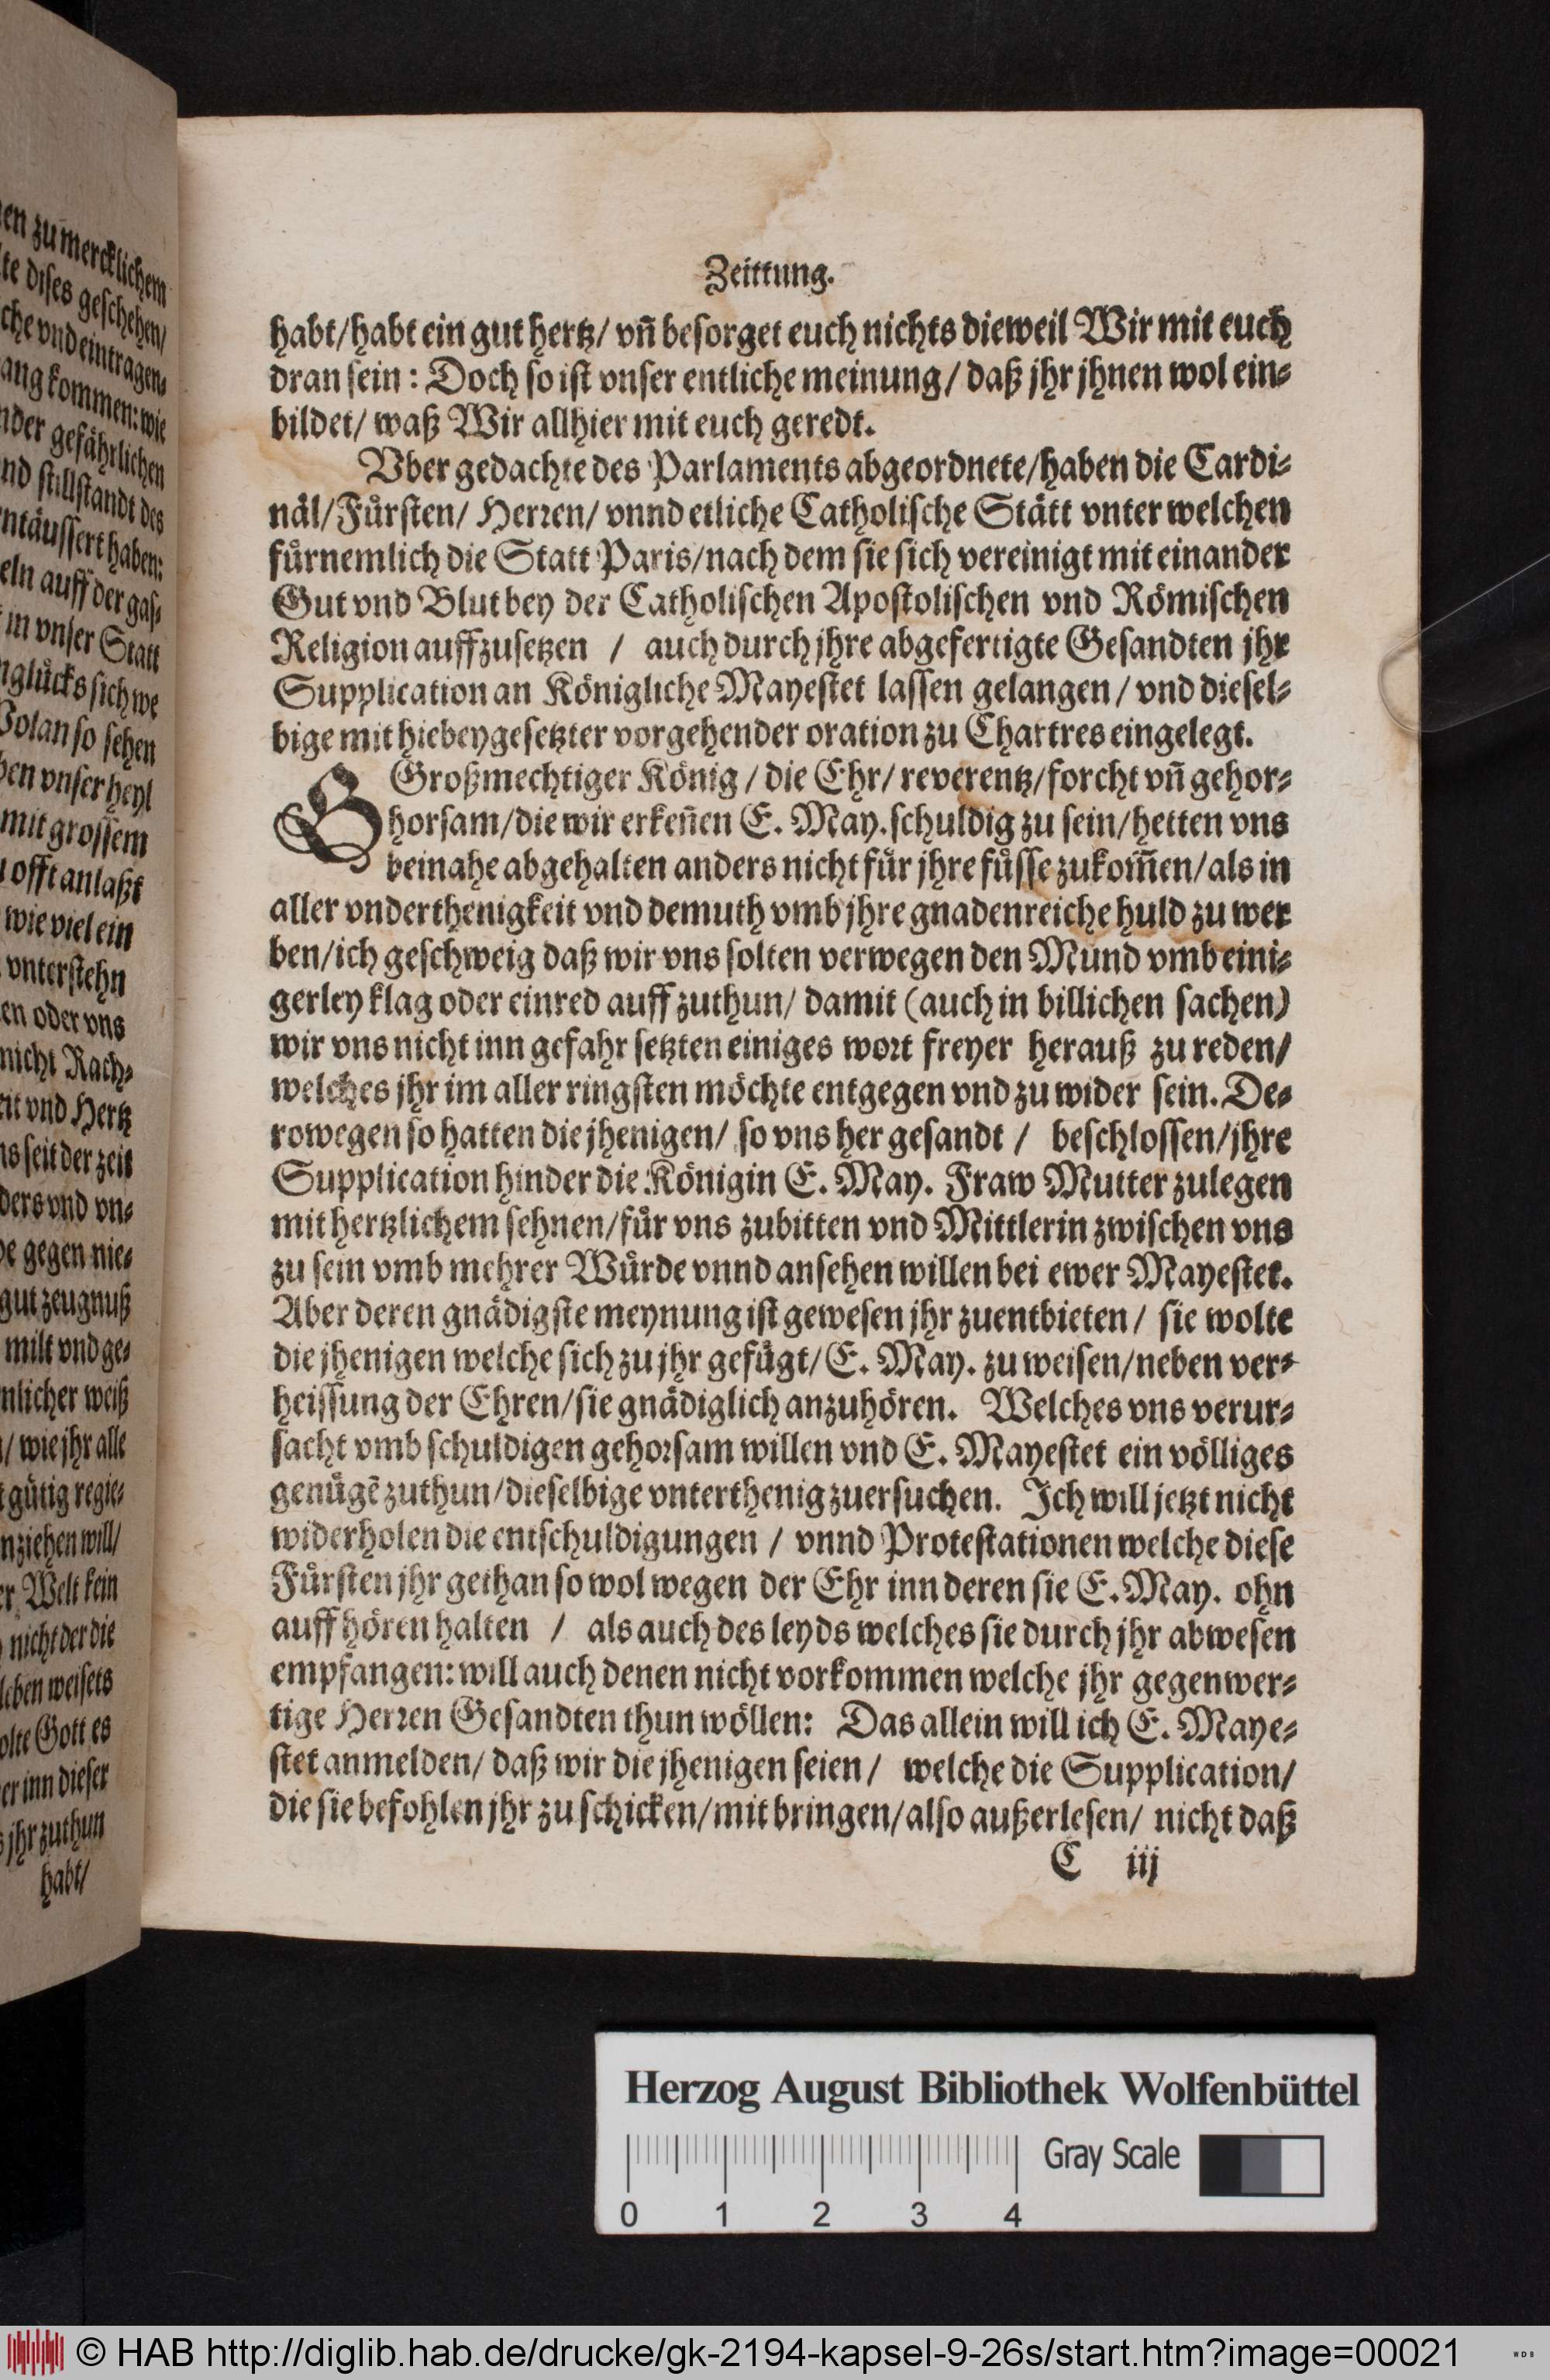 Zeittung.
habt/habt ein gut hertz/ vn̄ besorget euch nichts dieweil Wir mit euch
dran sein: Doch so ist vnser entliche meinung/ daß jhr jhnen wol ein-
bildet/ waß Wir allhier mit euch geredt.
Vber gedachte des Parlaments abgeordnete/haben die Cardi-
näl/Fürsten/ Herren/ vnnd etliche Catholische Stätt vnter welchen
fürnemlich die Statt Paris/nach dem sie sich vereinigt mit einander
Gut vnd Blut bey der Catholischen Apostolischen vnd Römischen
Religion auffzusetzen / auch durch jhre abgefertigte Gesandten jhr
Supplication an Königliche Mayestet lassen gelangen/ vnd diesel-
bige mit hiebey gesetzter vorgehender oration zu Chartres eingelegt.
Großmechtiger König / die Ehr/ reverentz/forcht vn̄ gehor-
horsam/die wir erken̄en E. May. schuldig zu sein/hetten vns
beinahe abgehalten anders nicht für jhre füsse zukom̄en/als in
aller vnderthenigkeit vnd demuth vmb jhre gnadenreiche huld zu wer
ben/ich geschweig daß wir vns solten verwegen den Mund vmb eini-
gerley klag oder einred auff zuthun/ damit (auch in billichen sachen)
wir vns nicht inn gefahr setzten einiges wort freyer herauß zu reden/
welches jhr im aller ringsten möchte entgegen vnd zu wider sein. De-
rowegen so hatten die jhenigen/ so vns her gesandt / beschlossen/jhre
Supplication hinder die Königin E. May. Fraw Mutter zulegen
mit hertzlichem sehnen/für vns zubitten vnd Mittlerin zwischen vns
zu sein vmb mehrer Würde vnnd ansehen willen bei ewer Mayestet.
Aber deren gnädigste meynung ist gewesen jhr zuentbieten/ sie wolte
die jhenigen welche sich zu jhr gefügt/ E. May. zu weisen/neben ver-
heissung der Ehren/sie gnädiglich anzuhören. Welches vns verur-
sacht vmb schuldigen gehorsam willen vnd E. Mayestet ein völliges
genügē zuthun/dieselbige vnterthenig zuersuchen. Ich will jetzt nicht
widerholen die entschuldigungen / vnnd Protestationen welche diese
Fürsten jhr gethan so wol wegen der Ehr inn deren sie E. May. ohn
auff hören halten / als auch des leyds welches sie durch jhr abwesen
empfangen: will auch denen nicht vorkommen welche jhr gegenwer-
tige Herren Gesandten thun wöllen: Das allein will ich E. Maye-
stet anmelden/ daß wir die jhenigen seien/ welche die Supplication/
die sie befohlen jhr zu schicken/mit bringen/also außerlesen/ nicht daß
C iij
en zu mercklichem
te dises geschehen/
che vnd eintragen-
ang kommen: wie
nder gefährlichen
nd stillstandt des
ntäussert haben:
eln auff der gas-
in vnser Statt
nglücks sich we
Wolan so sehen
ben vnser heyl
mit grossem
offt anlaßt
wie viel ein
vnterstehn
en oder vns
nicht Rach-
eit vnd Hertz
ns seit der zeit
ders vnd vn-
de gegen nie-
gut zeugnuß
milt vnd ge-
nlicher weiß
/ wie jhr alle
t gütig regie-
nziehen will/
er Welt kein
nicht der die
leben weisets
olte Gott es
er inn dieser
jhr zuthun
habt/
Herzog August Bibliothek Wolfenbüttel
Gray Scale
0 1 2 3 4
© HAB http://diglib.hab.de/drucke/gk-2194-kapsel-9-26s/start.htm?image=00021
WDB